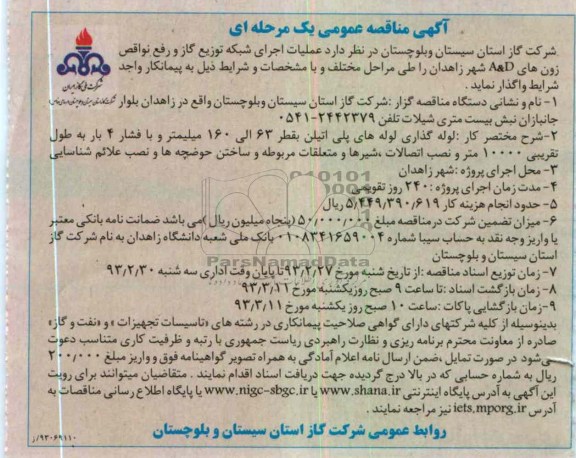 آگهی مناقصه عمومی یک مرحله ای
شرکت گاز استان سیستان وبلوچستان در نظر دارد عملیات اجرای شبکه توزیع گاز و رفع نواقص
زون های A&D شهر زاهدان را طی مراحل مختلف و با مشخصات و شرایط ذیل به پیمانکار واجد
شرایط واگذار نماید .
۱- نام و نشانی دستگاه مناقصه گزار :شرکت گاز استان سیستان وبلوچستان واقع در زاهدان بلوار
جانبازان نبش بیست متری شیلات تلفن ۲۴۴۲۳۷۹-۰۵۴۱
۲-شرح مختصر کار :لوله گذاری لوله های پلی اتیلن بقطر ۶۳ الی ۱۶۰ میلیمتر و با فشار ۴ بار به طول
تقریبی ۱۰۰۰۰ متر و نصب اتصالات ،شیرها و متعلقات مربوطه و ساختن حوضچه ها و نصب علائم شناسایی
۳- محل اجرای پروژه :شهر زاهدان
۴- مدت زمان اجرای پروژه :۲۴۰ روز تقویمی
۵- حدود انجام هزینه کار ۵/۴۴۹/۳۹۰/۶۱۹ ریال
۶- میزان تضمین شرکت درمناقصه مبلغ ۵۰/۰۰۰/۰۰۰ (پنجاه میلیون ریال )می باشد ضمانت نامه بانکی معتبر
یا واریز وجه نقد به حساب سیبا شماره ۰۱۰۸۳۴۱۶۵۹۰۰۴ بانک ملی شعبه دانشگاه زاهدان به نام شرکت گاز
استان سیستان و بلوچستان
۷- زمان توزیع اسناد مناقصه :از تاریخ شنبه مورخ ۹۳/۲/۲۷ تا پایان وقت اداری سه شنبه ۹۳/۲/۳۰
۸- زمان بازگشت اسناد :تا ساعت ۹ صبح روز یکشنبه مورخ ۹۳/۳/۱۱
۹- زمان بازگشایی پاکات :ساعت ۱۰ صبح روز یکشنبه مورخ ۹۳/۳/۱۱
بدینوسیله از کلیه شرکتهای دارای گواهی صلاحیت پیمانکاری در رشته های «تاسیسات تجهیزات » و «نفت و گاز»
صادره از معاونت محترم برنامه ریزی و نظارت راهبردی ریاست جمهوری با رتبه و ظرفیت کاری متناسب دعوت
می شود در صورت تمایل ،ضمن ارسال نامه اعلام آمادگی به همراه تصویر گواهینامه فوق و واریز مبلغ ۲۰۰/۰۰۰
ریال به شماره حسابی که در بالا درج گردیده جهت دریافت اسناد اقدام نمایند . متقاضیان میتوانند برای رویت
این آگهی به آدرس پایگاه اینترنتی www.shana.ir یا www.nigc-sbgc.ir یا پایگاه اطلاع رسانی مناقصات به
آدرس iets.mporg.ir نیز مراجعه نمایند .
روابط عمومی شرکت گاز استان سیستان و بلوچستان
۹۳۰۶۹۱۱۰/ز
ParsNamadData